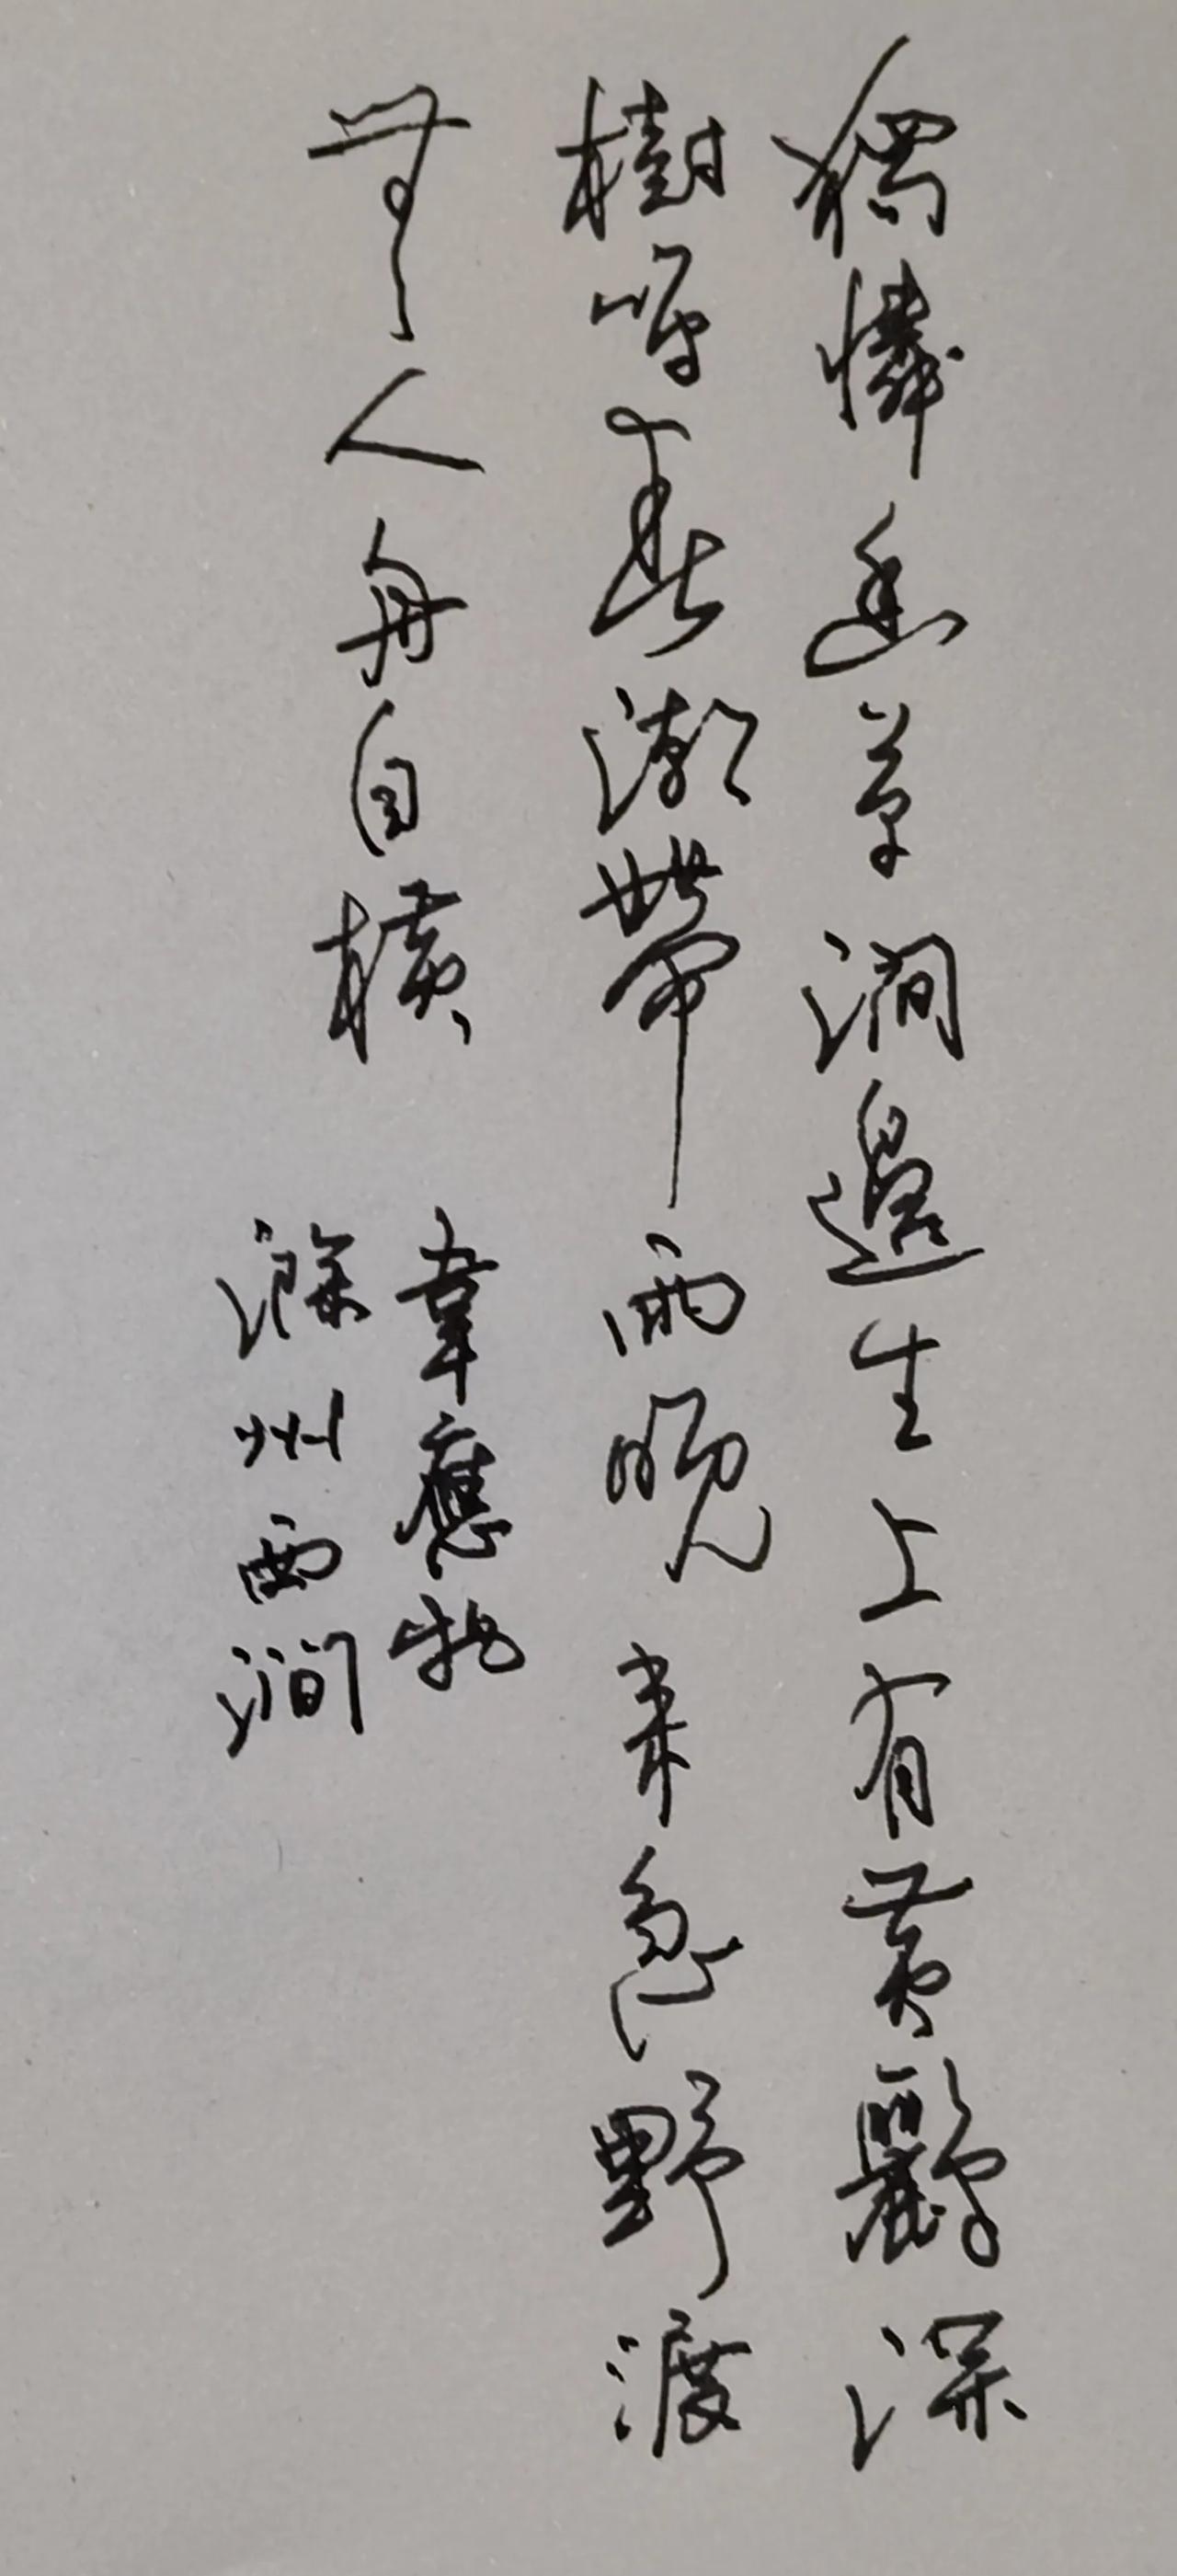 獨憐幽草澗邊生上有黄鸝深
樹鳴春潮帶雨晚来急野渡
無人舟自橫
韋應物
滁州西澗